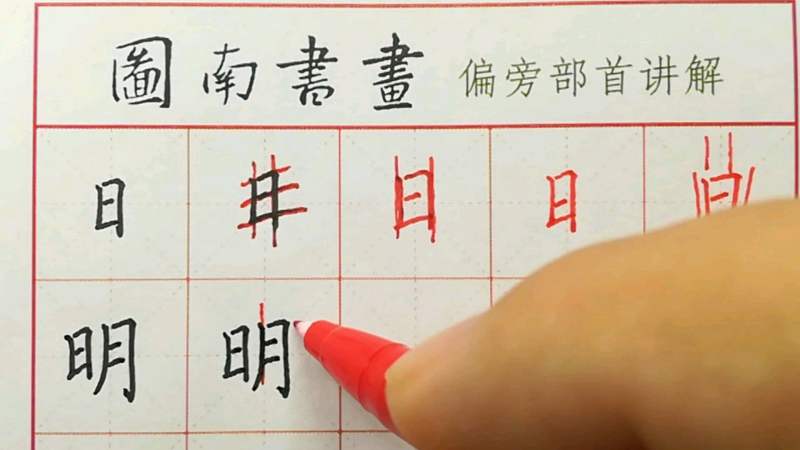 圖南書畫 偏旁部首讲解
日 日 日 日 日
明 明